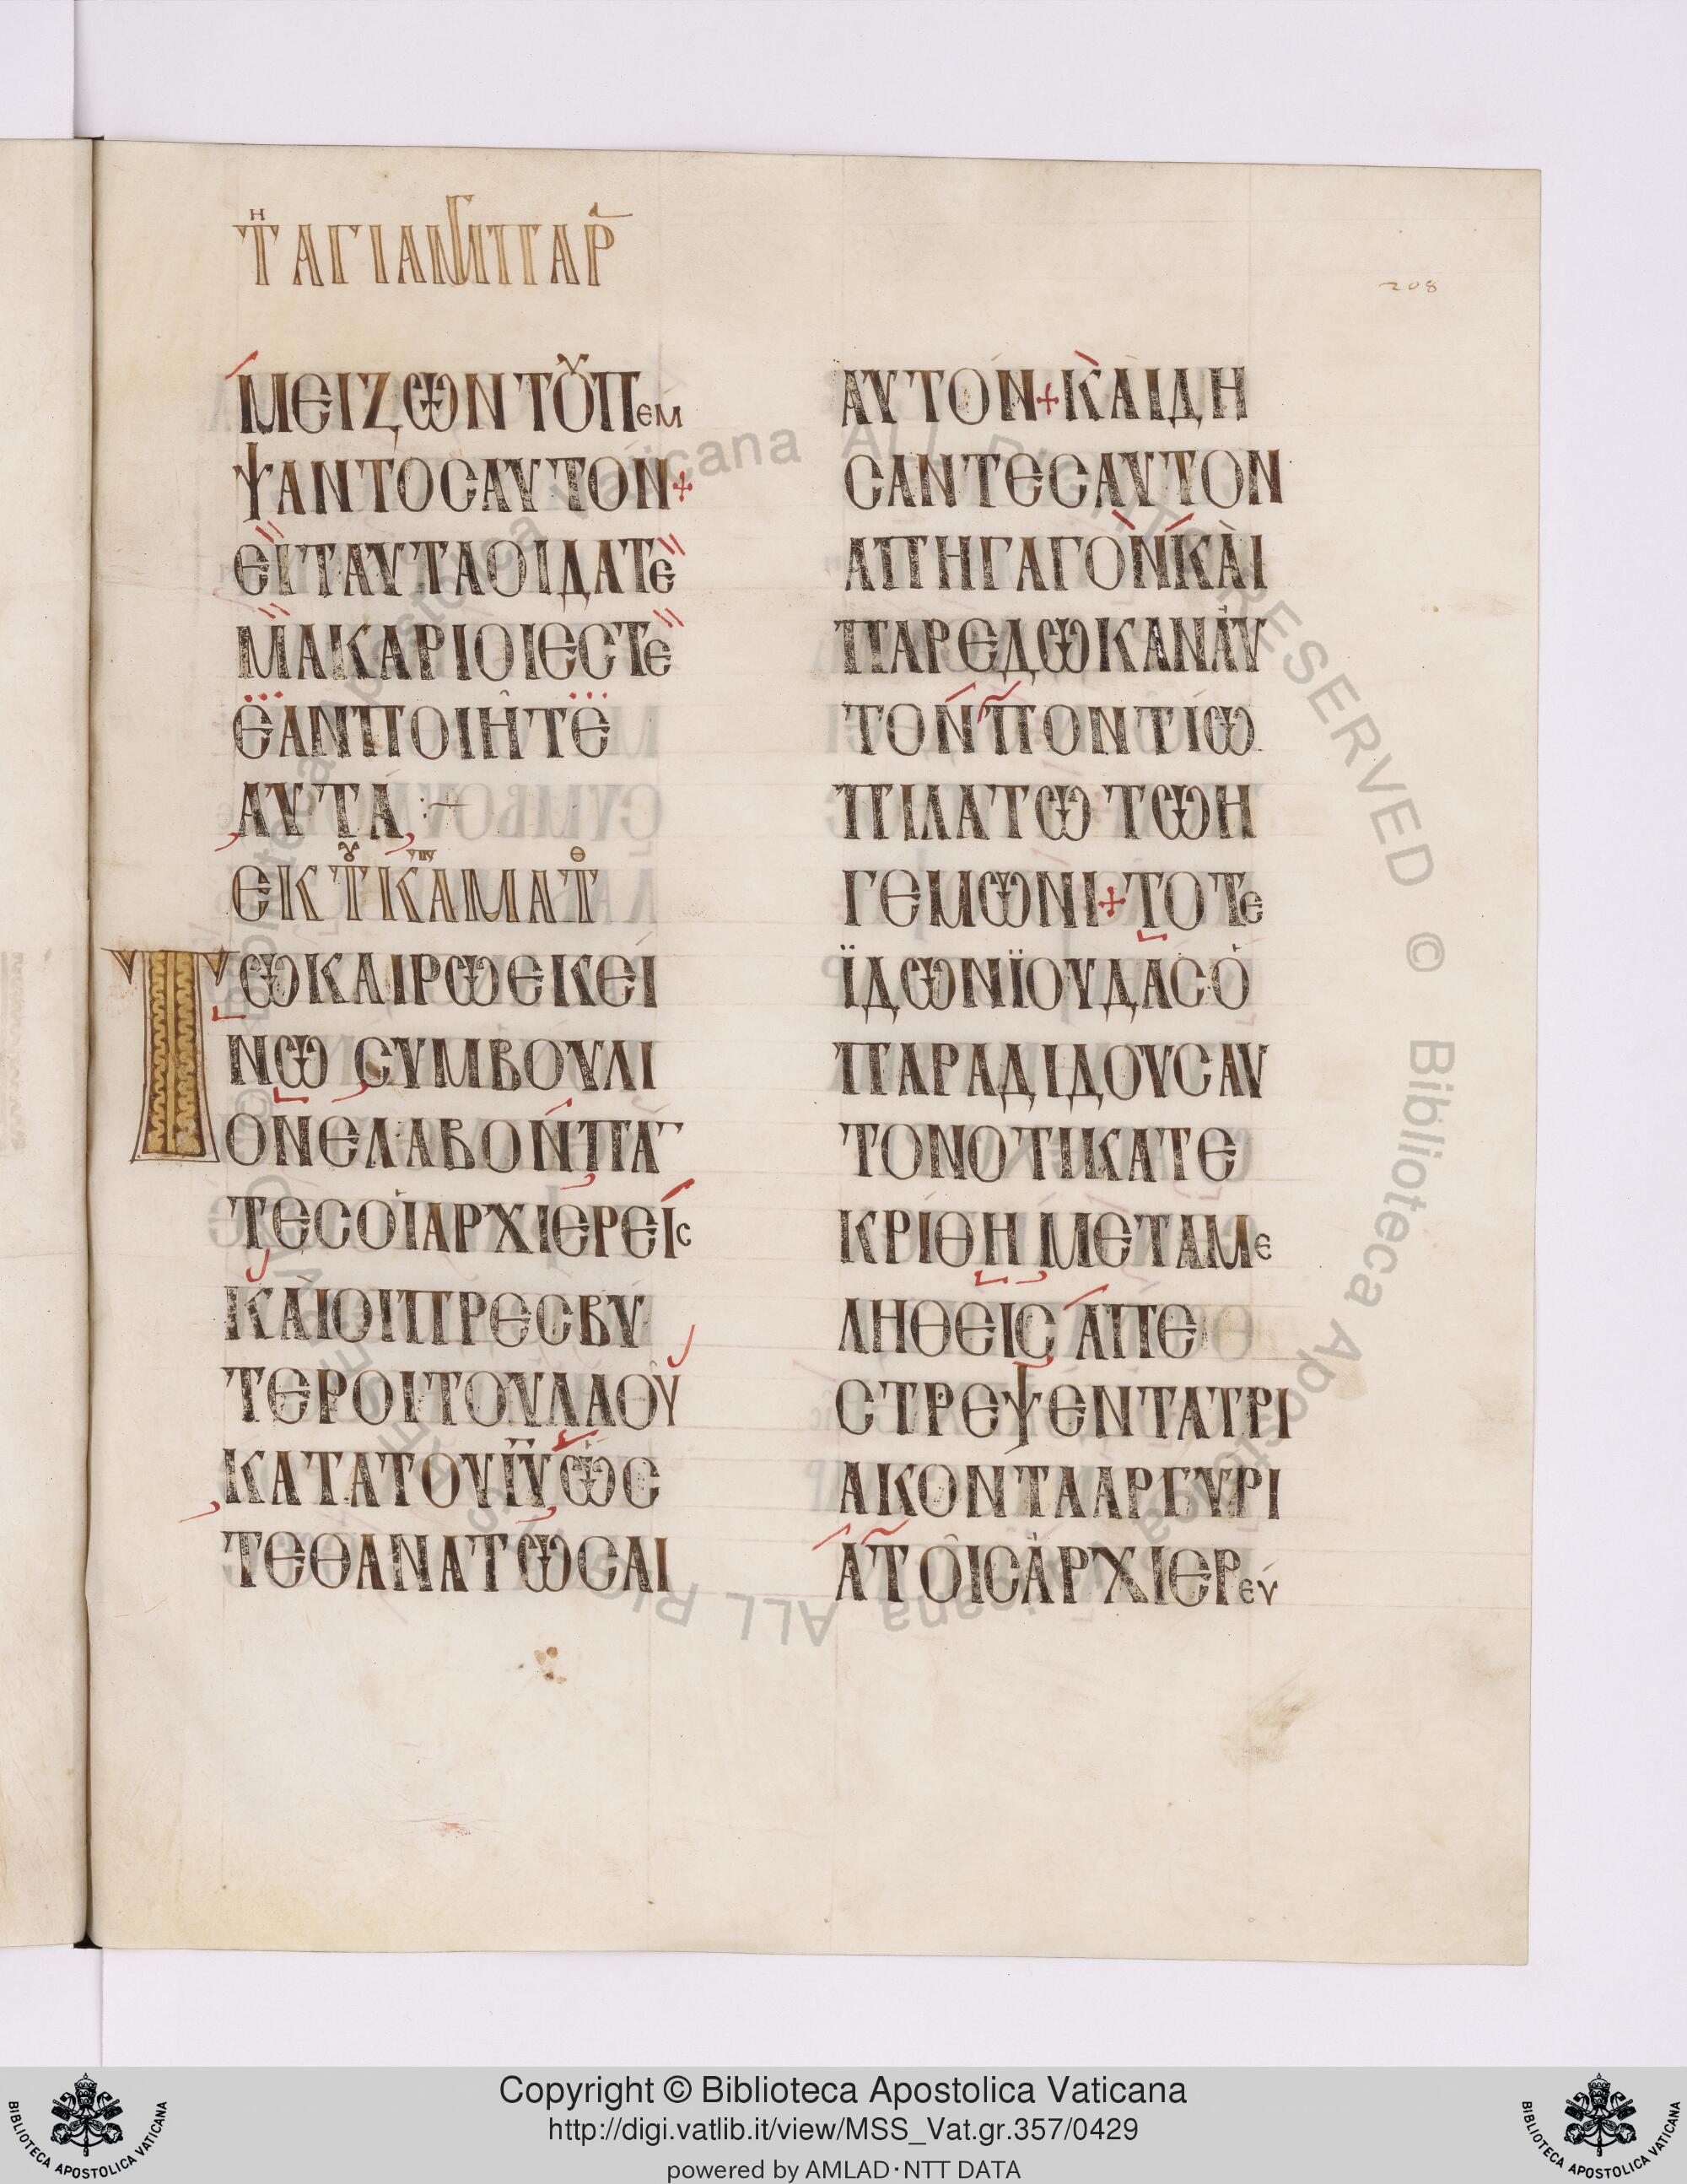 Τ͞Η ΑΓΙΑ ΚΑΙ ΠΑΡ
208
ΜΕΙΖΩΝΤΟΥΠΕΜ
ΨΑΝΤΟCΑΥΤΟΝ+
ΕΙΤΑΥΤΑΟΙΔΑΤΕ
ΜΑΚΑΡΙΟΙΕCΤΕ
ΕΑΝΠΟΙΗΤΕ
ΑΥΤΑ:+
ΕΚΤΟΥΚΑΜΑΤΘ
ΤΩΚΑΙΡΩΕΚΕΙ
ΝΩ CΥΜΒΟΥΛΙ
ΟΝΕΛΑΒΟΝΠΑ
ΤΕCΟΙΑΡΧΙΕΡΕΙC
ΚΑΙΟΙΠΡΕCΒΥ
ΤΕΡΟΙΤΟΥΛΑΟΥ
ΚΑΤΑΤΟΥΙΥΩC
ΤΕΘΑΝΑΤΩCΑΙ
ΑΥΤΟΝ+ΚΑΙΔΗ
CΑΝΤΕCΑΥΤΟΝ
ΑΠΗΓΑΓΟΝΚΑΙ
ΠΑΡΕΔΩΚΑΝΑΥ
ΤΟΝΠΟΝΤΙΩ
ΠΙΛΑΤΩΤΩΗ
ΓΕΜΩΝΙ+ΤΟΤΕ
ΪΔΩΝΪΟΥΔΑCΟ
ΠΑΡΑΔΙΔΟΥCΑΥ
ΤΟΝΟΤΙΚΑΤΕ
ΚΡΙΘΗ ΜΕΤΑΜΕ
ΛΗΘΕΙC ΑΠΕ
CΤΡΕΨΕΝΤΑΤΡΙ
ΑΚΟΝΤΑΑΡΓΥΡΙ
ΑΤΟΙCΑΡΧΙΕΡΕΥ
Copyright © Biblioteca Apostolica Vaticana
http://digi.vatlib.it/view/MSS_Vat.gr.357/0429
powered by AMLAD·NTT DATA
BIBLIOTECA APOSTOLICA VATICANA
BIBLIOTECA APOSTOLICA VATICANA